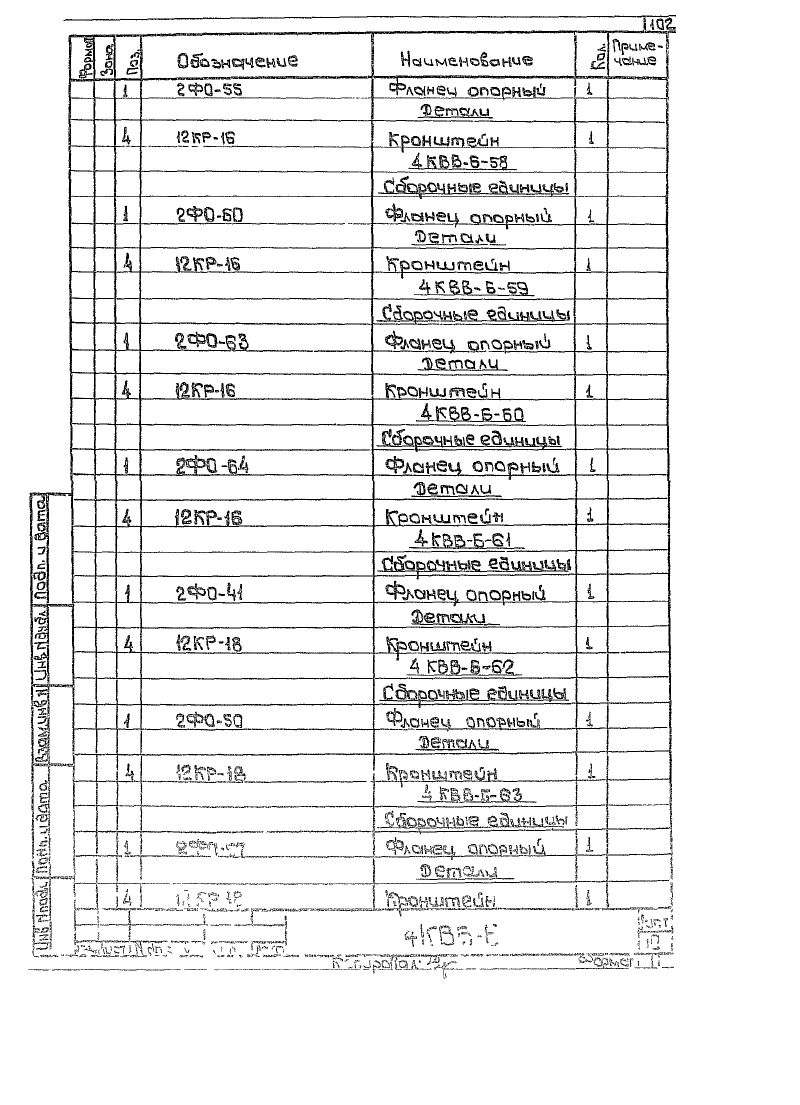 102
Формат Зона Поз. Обозначение Наименование Кол. Приме-
чание
1 2ФО-55 Фланец опорный 1
Детали
4 12КР-16 Кронштейн 1
4КВВ-Б-58
Сборочные единицы
1 2ФО-60 Фланец опорный 1
Детали
4 12КР-16 Кронштейн 1
4КВВ-Б-59
Сборочные единицы
1 2ФО-63 Фланец опорный 1
Детали
4 12КР-16 Кронштейн 1
4КВВ-Б-60
Сборочные единицы
1 2ФО-64 Фланец опорный 1
Детали
4 12КР-16 Кронштейн 1
4КВВ-Б-61
Сборочные единицы
1 2ФО-41 Фланец опорный 1
Детали
4 12КР-18 Кронштейн 1
4КВВ-Б-62
Сборочные единицы
1 2ФО-50 Фланец опорный 1
Детали
4 12КР-18 Кронштейн 1
4КВВ-Б-63
Сборочные единицы
1 Фланец опорный 1
Детали
4 12КР-18 Кронштейн 1
Подп. и дата
Взам.инв.N
Подп. и дата
Инв.Nподл.
4КВВ-Б
Лист
10
Копировал:
Формат 11